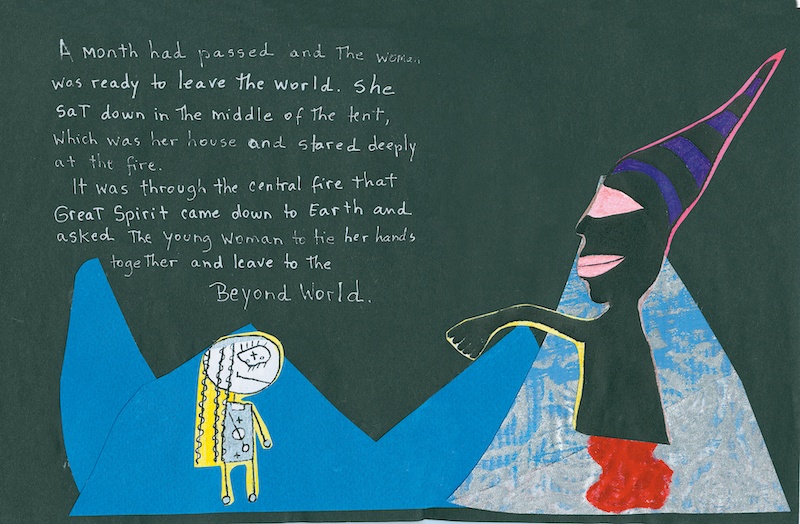 A month had passed and The woman
was ready to leave the world. She
sat down in The middle of The tent,
which was her house and stared deeply
at the fire.
It was through the central fire that
Great Spirit came down to Earth and
asked The young woman to tie her hands
together and leave to the
Beyond World.